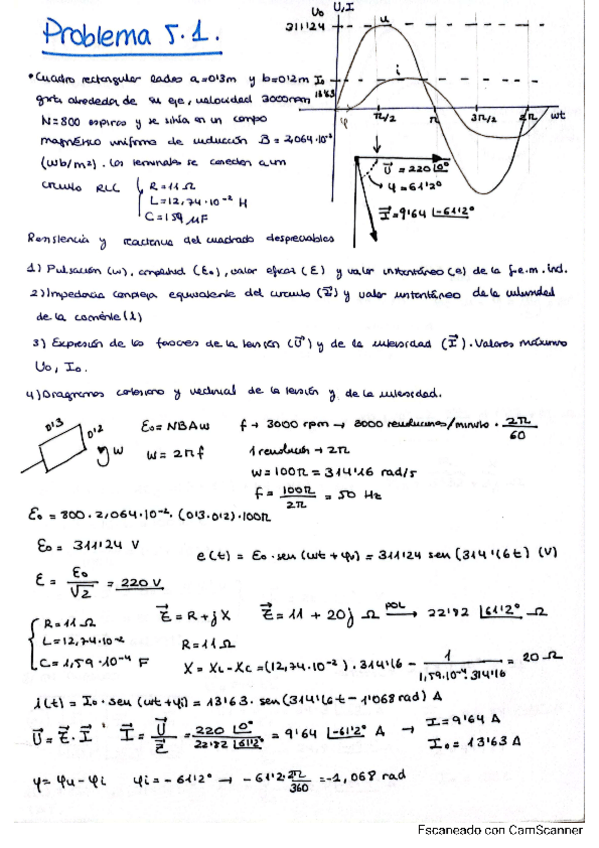 Problema 5.1.
U₀ U,I
311'24
u
I₀
13'63
i
φ
π/2
π
3π/2
2π
wt
• Cuadro rectangular lados a=0'3m y b=0'2m
gira alrededor de su eje, velocidad 3000rpm
N=800 espiras y se sitúa en un campo
magnético uniforme de inducción B=2,064·10⁻²
(Wb/m²). Los terminales se conectan a un
circuito RLC { R=11 Ω
L=12,74·10⁻² H
C=159 μF
U⃗ = 220 |0°
φ=61'2°
I⃗=9'64 |-61'2°
Resistencia y reactancia del cuadrado despreciables
1) Pulsación (w), amplitud (E₀), valor eficaz (E) y valor instantáneo (e) de la f.e.m. ind.
2) Impedancia compleja equivalente del circuito (Z⃗) y valor instantáneo de la intensidad
de la corriente (i)
3) Expresión de los fasores de la tensión (U⃗) y de la intensidad (I⃗). Valores máximos
U₀, I₀.
4) Diagramas cartesiano y vectorial de la tensión y de la intensidad.
0'3
0'2
w
E₀= NBAw
f → 3000 rpm → 3000 revoluciones/minuto · 2π/60
w = 2πf
1 revolución → 2π
w=100π = 314'16 rad/s
f = 100π/2π = 50 Hz
E₀ = 800 · 2,064·10⁻² · (0'3·0'2)·100π
E₀ = 311'24 V
e(t) = E₀ · sen (wt + φ₀) = 311'24 sen (314'16t) (V)
E = E₀/√2 = 220 V
{ R=11 Ω
L=12,74·10⁻²
C=1,59·10⁻⁴ F
Z⃗ = R+jX
Z⃗ = 11 + 20j Ω POL → 22'82 |61'2° Ω
R=11 Ω
X = XL-XC = (12,74·10⁻²) · 314'16 - 1/1,59·10⁻⁴·314'16 = 20 Ω
i(t) = I₀ · sen (wt+φi) = 13'63 · sen (314'16t - 1'068 rad) A
U⃗ = Z⃗ · I⃗
I⃗ = U⃗/Z⃗ = 220 |0°/22'82 |61'2° = 9'64 |-61'2° A → I=9'64 A
I₀ = 13'63 A
φ= φu - φi
φi = -61'2° → -61'2·2π/360 = -1,068 rad
Escaneado con CamScanner